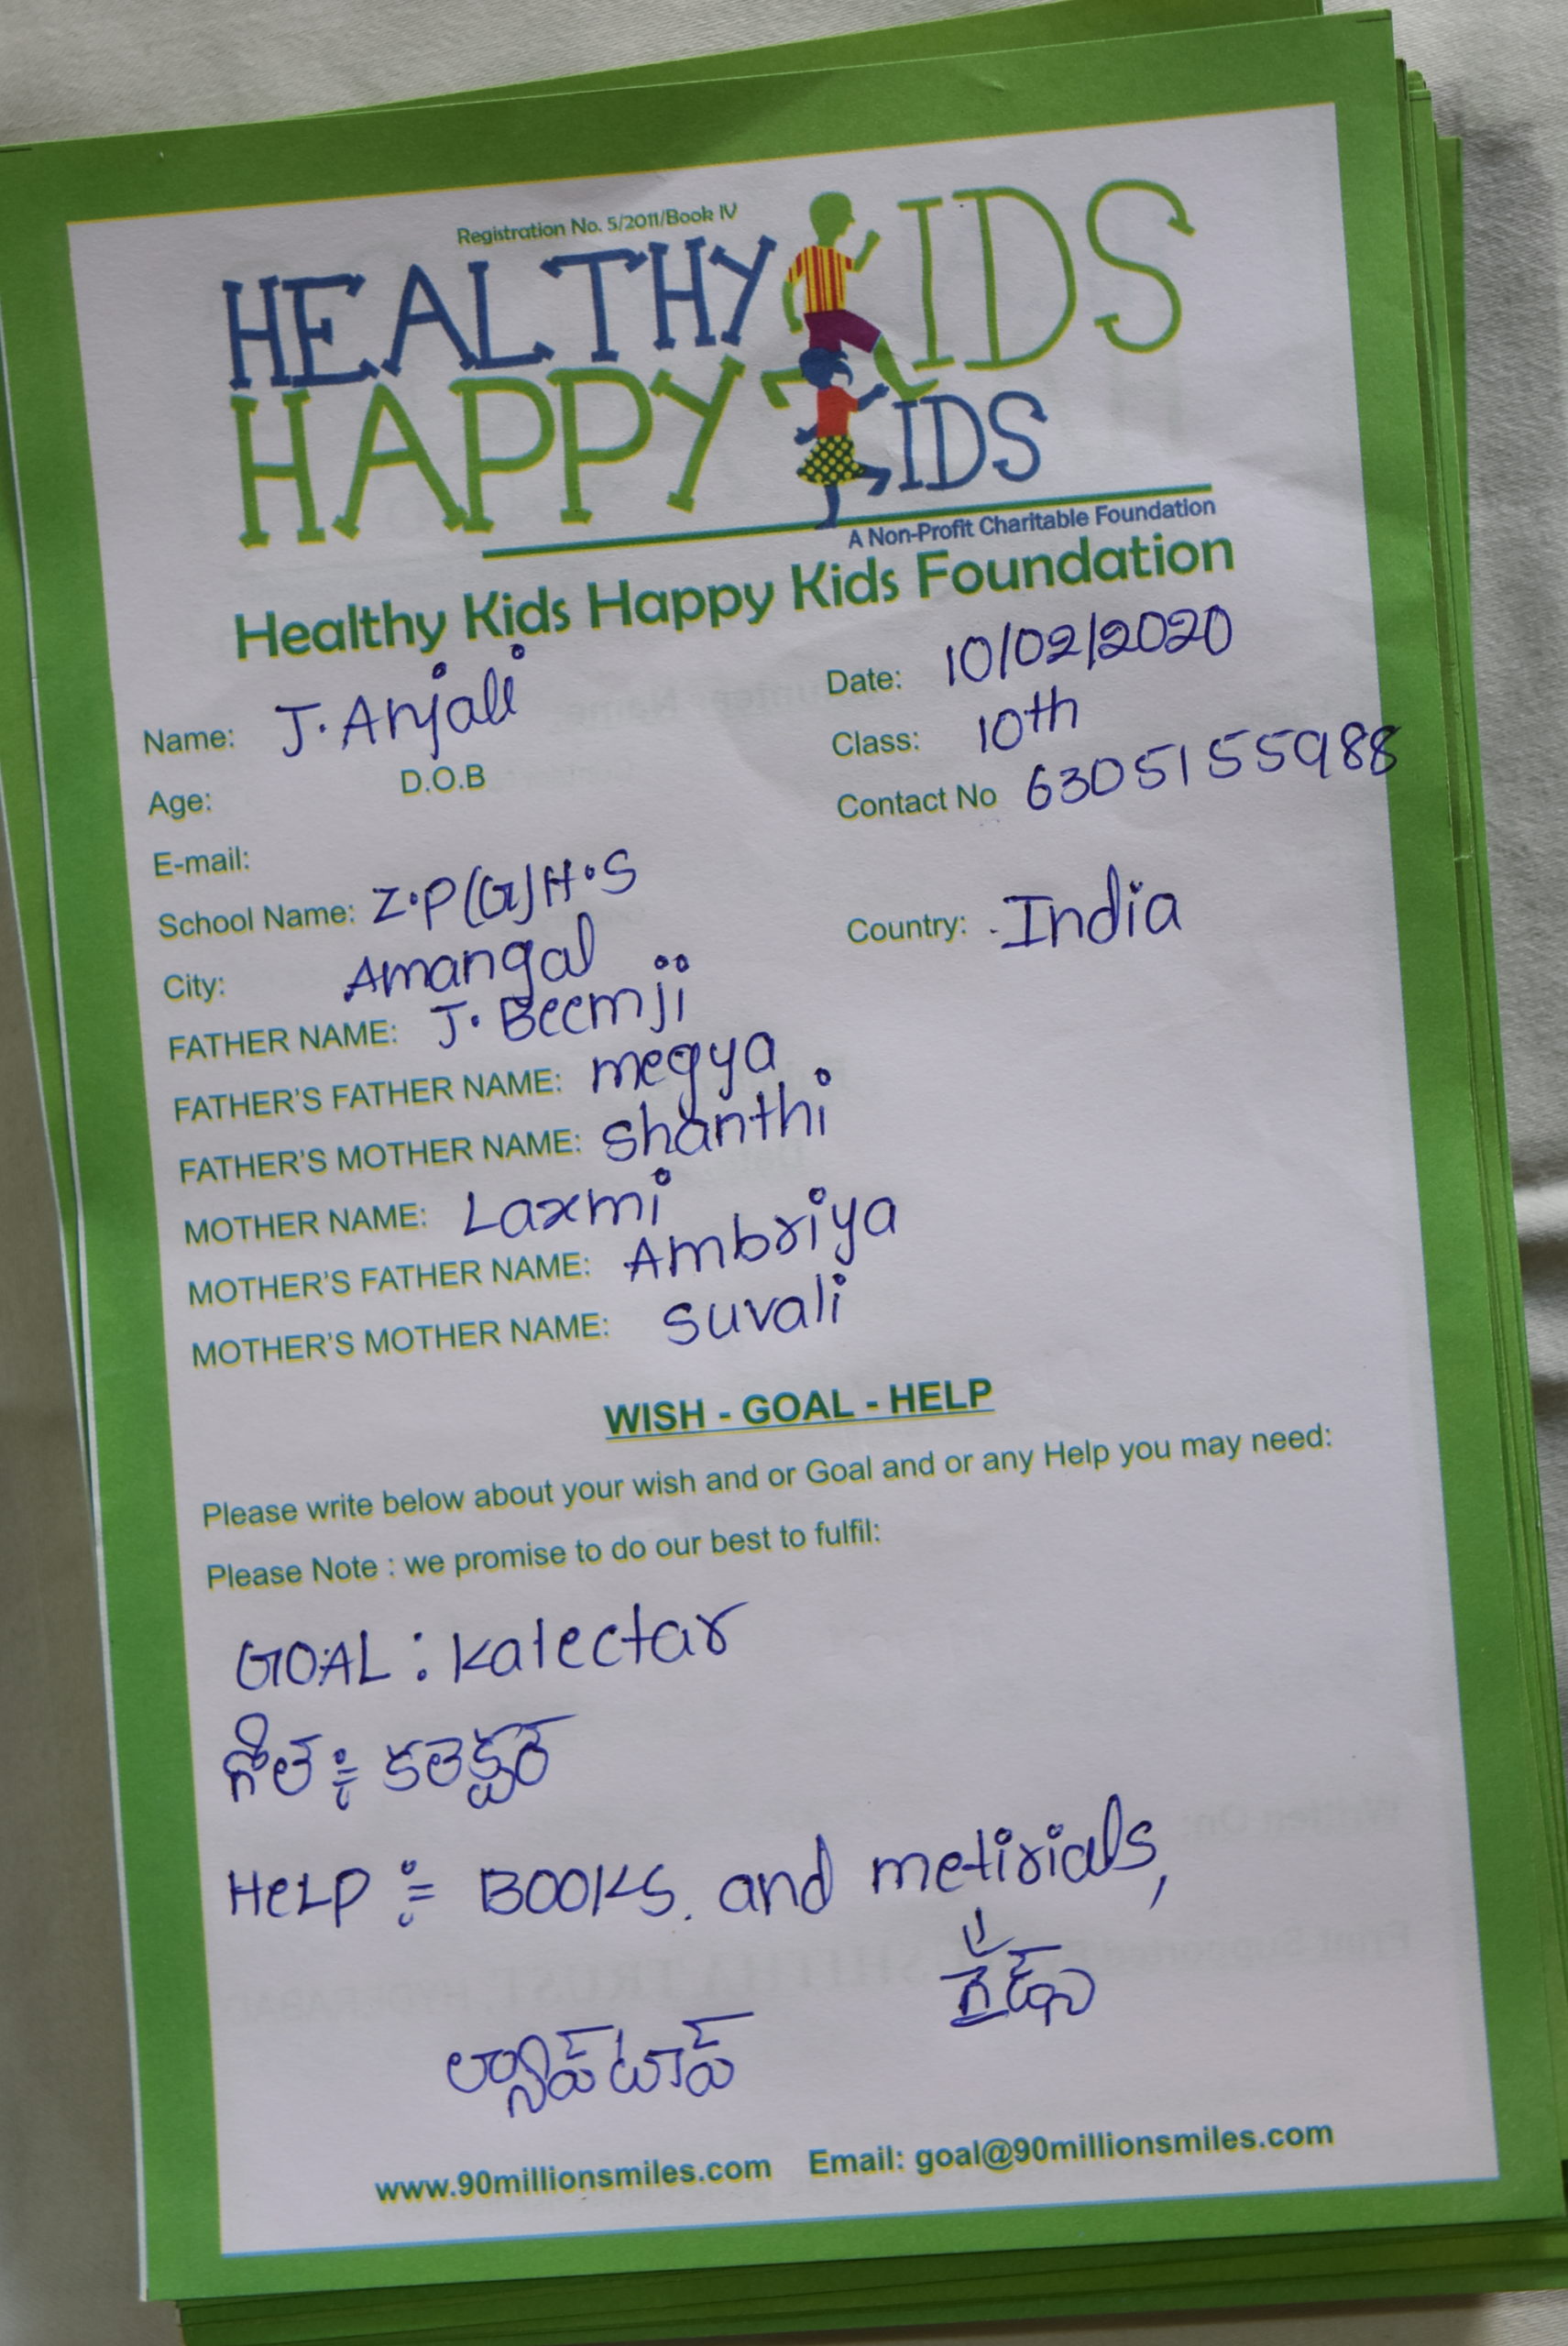 Registration No. 5/2011/Book IV
HEALTHY KIDS
HAPPY KIDS
A Non-Profit Charitable Foundation
Healthy Kids Happy Kids Foundation
Name: J. Anjali Date: 10/02/2020
Age: D.O.B Class: 10th
E-mail: Contact No 63051 55988
School Name: Z.P(G)H.S
City: Amangal Country: India
FATHER NAME: J. Beemji
FATHER'S FATHER NAME: megya
FATHER'S MOTHER NAME: shanthi
MOTHER NAME: Laxmi
MOTHER'S FATHER NAME: Ambriya
MOTHER'S MOTHER NAME: suvali
WISH - GOAL - HELP
Please write below about your wish and or Goal and or any Help you may need:
Please Note : we promise to do our best to fulfil:
GOAL : kalectar
గోల : కలెక్టర్
HeLP : BOOKS. and metirials,
గైడ్స్
www.90millionsmiles.com Email: goal@90millionsmiles.com